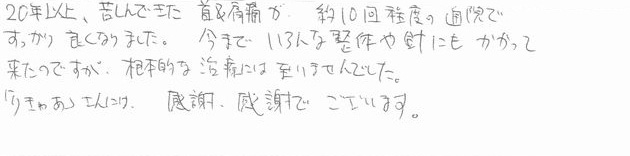 20年以上、苦しんできた 首&肩痛が 約10回程度の通院で
すっかり良くなりました。 今まで いろんな整体や針にもかかって
来たのですが、根本的な治療には至りませんでした。
「りきゅあ」さんには、 感謝、感謝で ございます。